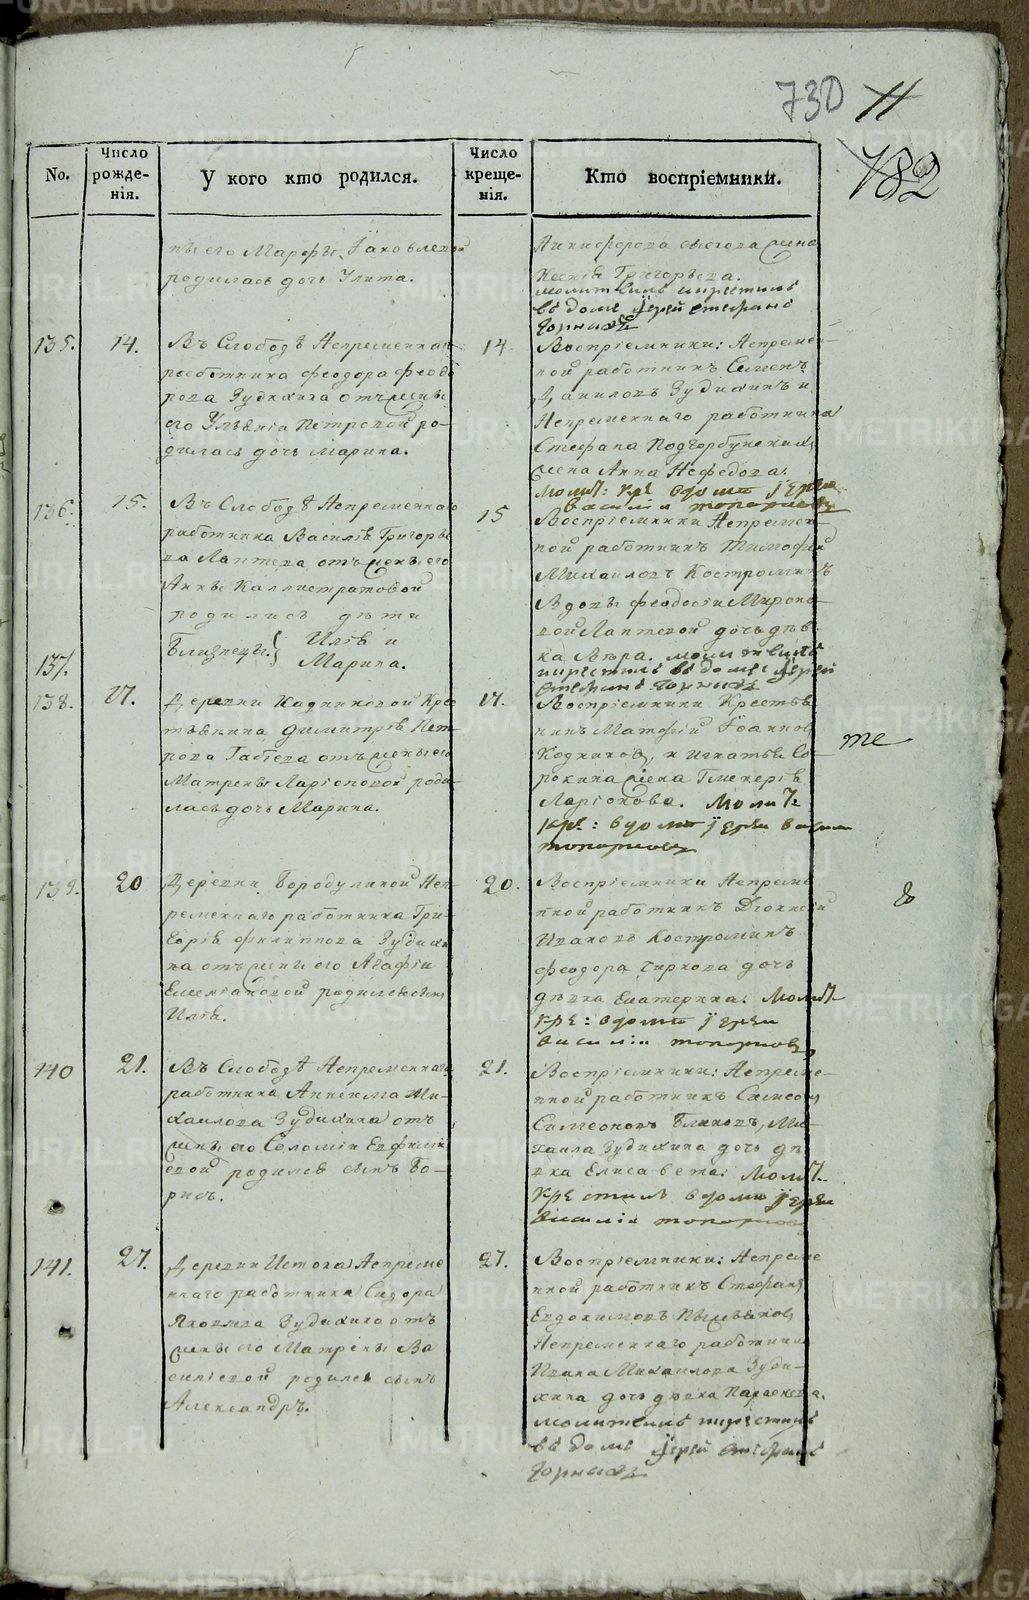 730 11
782
No. Число рожденія. У кого кто родился. Число крещенія. Кто воспріемники.
ны его Марфы Іаковлевой
родилась дочь Улита.
Никифорова Григорьева.
молитвилъ и крестилъ
въ домѣ іерей Стефанъ
Горныхъ
135. 14. Въ Слободѣ Непременнаго
работника Феодора Феодо
рова Зудихина отъ жены
его Ульяніи Петровой ро-
дилась дочь Марина.
14. Воспріемники: Непремен-
ной работникъ Семенъ
Даниловъ Зудихинъ и
Непременнаго работника
Стефана Подгорбунскихъ
жена Анна Нефедова.
Молит: кре: в доме іерей
Василій Топорковъ
136. 15. Въ Слободѣ Непременнаго
работника Василія Григорье
ва Лаптева отъ жены его
Анны Каллистратовой
родились дѣти
Близнецы. } Илія и
137. Марина.
15 Воспріемники Непремен-
ной работникъ Тимофей
Михаиловъ Костроминъ
Вдовы Феодосіи Мироно-
вой Лаптевой дочь дѣв-
ка Вѣра. молитвилъ
и крестилъ въ доме іерей
Стефанъ Горныхъ
138. 17. Деревни Кадниковой Крес
тьянина Димитрія Пет-
рова отъ жены его
Матрены Ларіоновой роди
лась дочь Марина.
17. Воспріемники Крестья
нинъ Матфій Іоаннов
Кодников, и Игнатья Со-
рокина жена Гликерія
Ларіонова. Молит:
кре: в доме іерей Василий
Топорковъ
те
139. 20 Деревни Бородулиной Неп-
ременнаго работника Гри-
горія Филиппова Зудихи
на отъ жены его Агафіи
Емеліановой родился сынъ
Илія.
20. Воспріемники Непремѣ
нной работникъ Діонисій
Ивановъ Костроминъ
Феодора Чиркова дочь
дѣвка Екатерина. Молит:
кре: в доме іерей
Василій Топорковъ
140 21. Въ Слободѣ Непременнаго
работника Аникима Ми-
хаилова Зудихина отъ
жены его Соломіи Евфимі
евой родился сынъ Бо-
рисъ.
21. Воспріемники: Непреме-
нной работникъ Симеонъ
Симеоновъ Блиновъ, Ми-
хаила Зудихина дочь дѣ
вка Елисавета. Молит:
крестилъ в доме іерей
Василій Топорковъ
141. 27. Деревни Истока Непреме
ннаго работника Сидора
Яковлева Зудихина отъ
жены его Матрены Ва
силіевой родился сынъ
Александръ.
27. Воспріемники: Непреме
нной работникъ Стефанъ
Евдокимовъ
Непременнаго работника
Ивана Михаилова Зуди-
хина дочь дѣвка Параскева.
молитвилъ и крестилъ
въ домѣ іерей Стефанъ
Горныхъ
METRIKI.GASO-URAL.RU